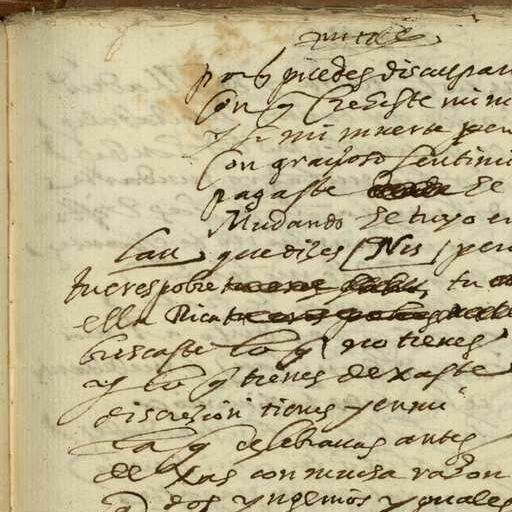 porq̃ puedes disculpar
con q̃ creyste mi m
y si mi muerte pen
con grayoso sentimi
pagaste el
Mudando el tuyo en
Lau, que dizes Nis, pero
tu eres pobre tu
ella Rica
buscaste lo q̃ no tienes
y lo q̃ tienes dexaste
discrezion tienes y en mi
la q̃ celebrauas antes
dexas con mucha razon
q̃ dos yngenios yguales